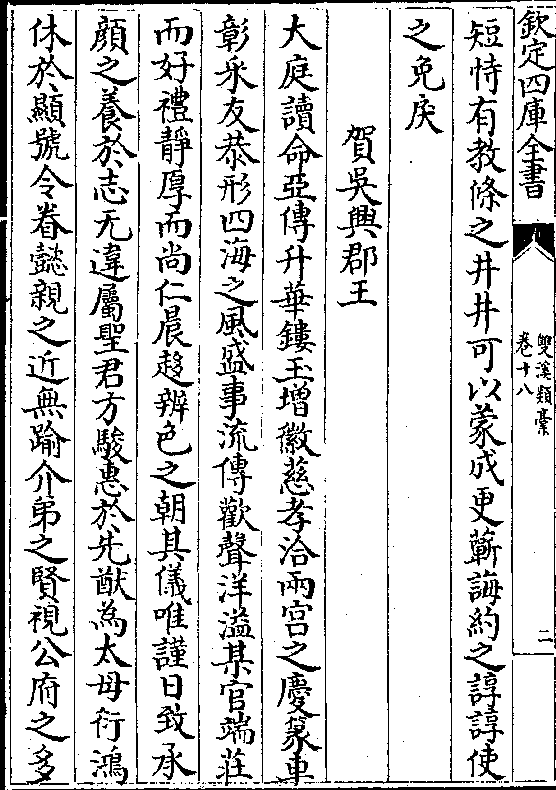 欽定四庫全書
雙溪類藁
卷十八
二
短恃有教條之井井可以蒙成更蘄誨約之諄諄使
之免戾
賀吳興郡王
大庭讀命亞傅升華鏤玉增徽慈孝洽兩宫之慶篆車
彰來友恭形四海之風盛事流傳歡聲洋溢某官端莊
而好禮靜厚而尚仁晨趍辨色之朝其儀唯謹日致承
顔之養於志无違屬聖君方駿惠於先猷為太母衍鴻
休於顯號令眷懿親之近無踰介弟之賢視公府之多